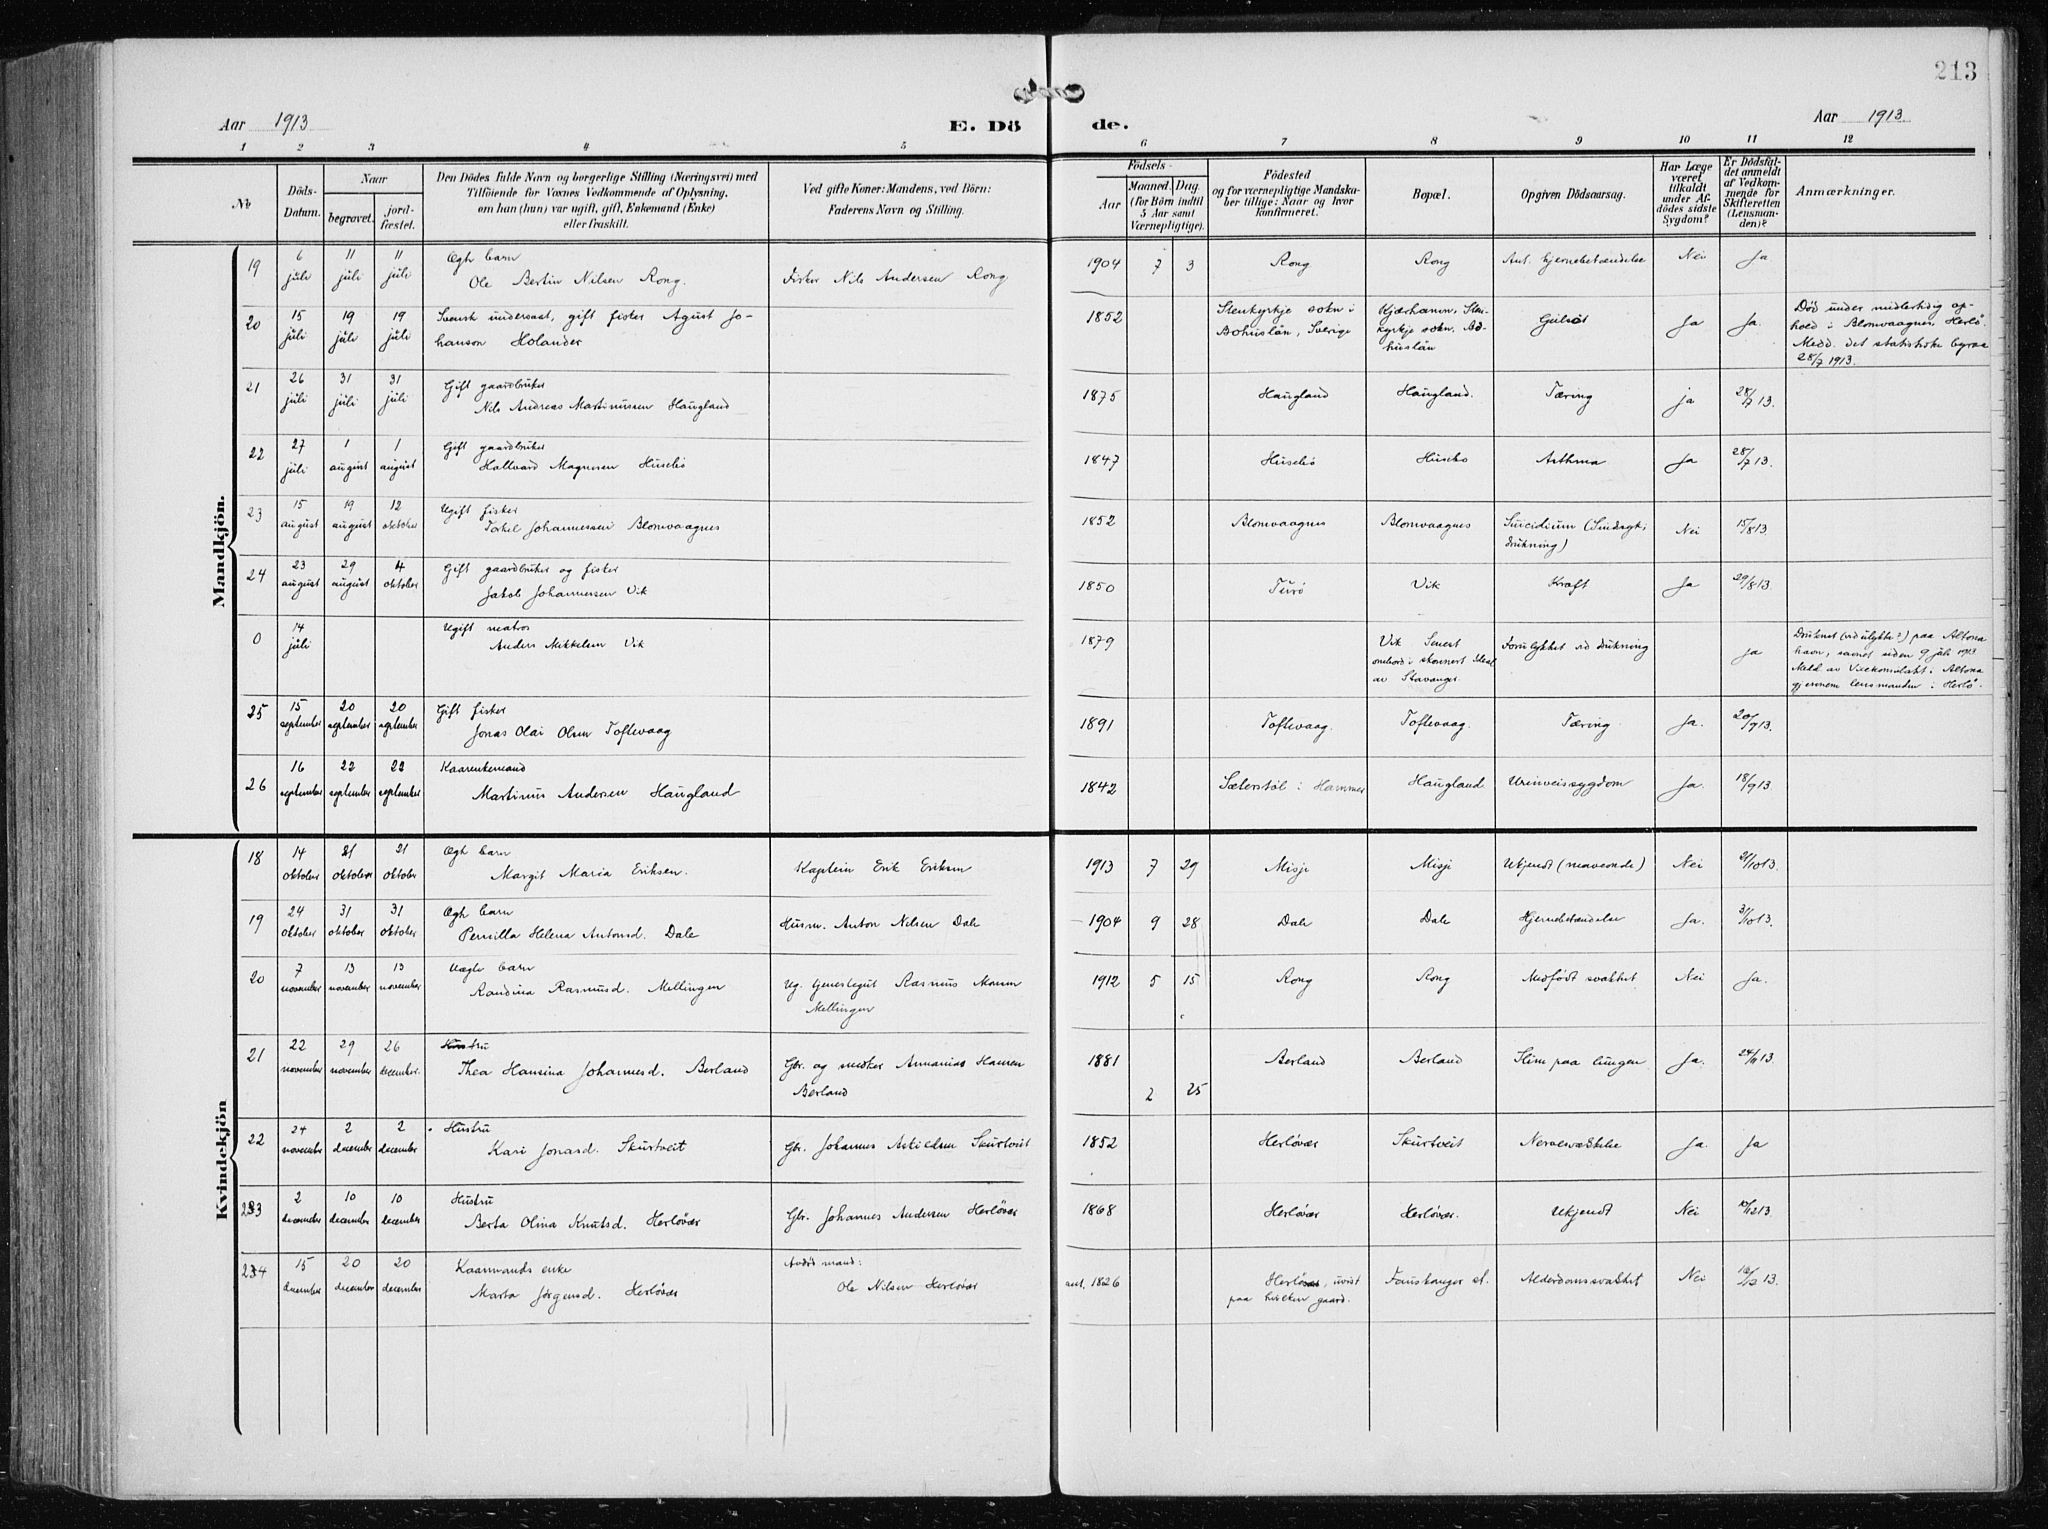 213
Aar 1913
E. Dö de.
Aar 1913.
1 2 3 4 5 6 7 8 9 10 11 12
No
Döds-Datum.
Naar
begravet.
jord-fæstet.
Den Dödes fulde Navn og borgerlige Stilling (Næringsvei) med
Tilföiende for Voxnes Vedkommende af Oplysning,
om han (hun) var ugift, gift, Enkemand (Enke)
eller fraskilt.
Ved gifte Koner: Mandens, ved Börn:
Faderens Navn og Stilling.
Födsels-
Aar
Maaned. Dag.
(for Börn indtil
5 Aar samt
Værnepligtige).
Födested
og for værnepligtige Mandska-
ber tillige: Naar og hvor
konfirmeret.
Bopæl.
Opgiven Dödsaarsag.
Har Læge
været
tilkaldt
under Af-
dödes sidste
Sygdom?
Er Dödsfal-
det anmeldt
af Vedkom-
mende for
Skifteretten
(Lensman-
den)?
Anmærkninger.
Mandkjön.
19 6 juli 11 juli 11 juli Ægte barn
Ole Bertin Nilsen Rong. Fisker Nils Andersen Rong 1904 7 3 Rong Rong Ant. hjernebetændelse Nei Ja
20 15 juli 19 juli 19 juli Svensk undersaat, gift fisker Agust Jo-
hanson Holander 1852 Stenkyrkje sokn i
Bohuslän, Sverige Kjærhamn, Sten-
kyrkje sokn, Bo-
huslän Gulsot Ja Ja. Död under midlertidig op-
hold i Blomvaagnes, Herlö.
Medd. det statistiske byraa
28/7 1913.
21 26 juli 31 juli 31 juli Gift gaardbruker
Nils Andreas Martinussen Haugland 1875 Haugland Haugland. Tæring ja 28/7 13.
22 27 juli 1 august 1 august Gift gaardbruker
Hallvard Magnesen Husebö 1847 Husebö Husebö Asthma Ja 28/7 13.
23 15 august 19 august 12 oktober Ugift fisker
Torkel Johannessen Blomvaagnes 1852 Blomvaagnes Blomvaagnes Suicidium (Sindssyk;
drukning) Nei 15/8 13.
24 23 august 29 august 4 oktober Gift gaardbruker og fisker
Jakob Johannessen Vik 1850 Turö Vik Kræft Ja 29/8 13.
0 14 juli Ugift matros
Anders Mikkelsen Vik 1879 Vik Senest
ombord i skonnert Ideal
av Stavanger. Forulykket ved drukning ja Druknet (ved ulykke?) paa Altona
havn, savnet siden 9 juli 1913
Meld. av Vicekonsulatet i Altona
gjennem lensmanden i Herlö.
25 15 september 20 september 20 september Gift fisker
Jonas Olai Olsen Toftevaag 1891 Toftevaag. Toftevaag. Tæring Ja. 20/9 13.
26 16 september 22 september 22 september Kaarenkemand
Martinus Andersen Haugland 1842 Sæterstöl i Hammer Haugland Urinveissygdom Ja. 18/9 13.
Kvindekjön
18 14 oktober 21 oktober 21 oktober Ægte barn
Margit Maria Eriksen. Kaptein Erik Eriksen 1913 7 29 Misje Misje Ukjendt (maveonde) Nei 21/10 13.
19 24 oktober 31 oktober 31 oktober Ægte barn
Pernilla Helena Antonsd. Dale Husm. Anton Nilsen Dale 1904 9 28 Dale Dale Hjernebetændelse Ja. 31/10 13.
20 7 november 13 november 13 november Uægte barn
Randina Rasmusd. Mellingen Ug. tjenestegut Rasmus Monsen
Mellingen 1912 5 15 Rong Rong Medfödt svakhet Nei Ja.
21 22 november 29 november 26 december. Hustru
Thea Hansina Johannesd. Berland Gbr. og snedker Annanias Hansen
Berland 1881 2 25 Berland Berland Slim paa lungen Ja. 24/11 13.
22 24 november 2 december 2 december Hustru
Kari Jonasd. Skurtveit Gbr. Johannes Askildsen Skurtveit 1852 Herlövær Skurtveit Nervesvækkelse Ja. Ja
23 2 december 10 december 10 december Hustru
Berta Olina Knutsd. Herlövær Gbr. Johannes Andersen Herlövær 1868 Herlövær Herlövær. Ukjendt Nei 10/12 13.
24 15 december 20 december 20 december Kaarmands enke
Marta Jörgensd. Herlövær Avdöd mand:
Ole Nilsen Herlövær ant. 1826 Herlö, uvist
paa hvilken gaard. Fauskanger st. Alderdomssvakhet Nei 13.